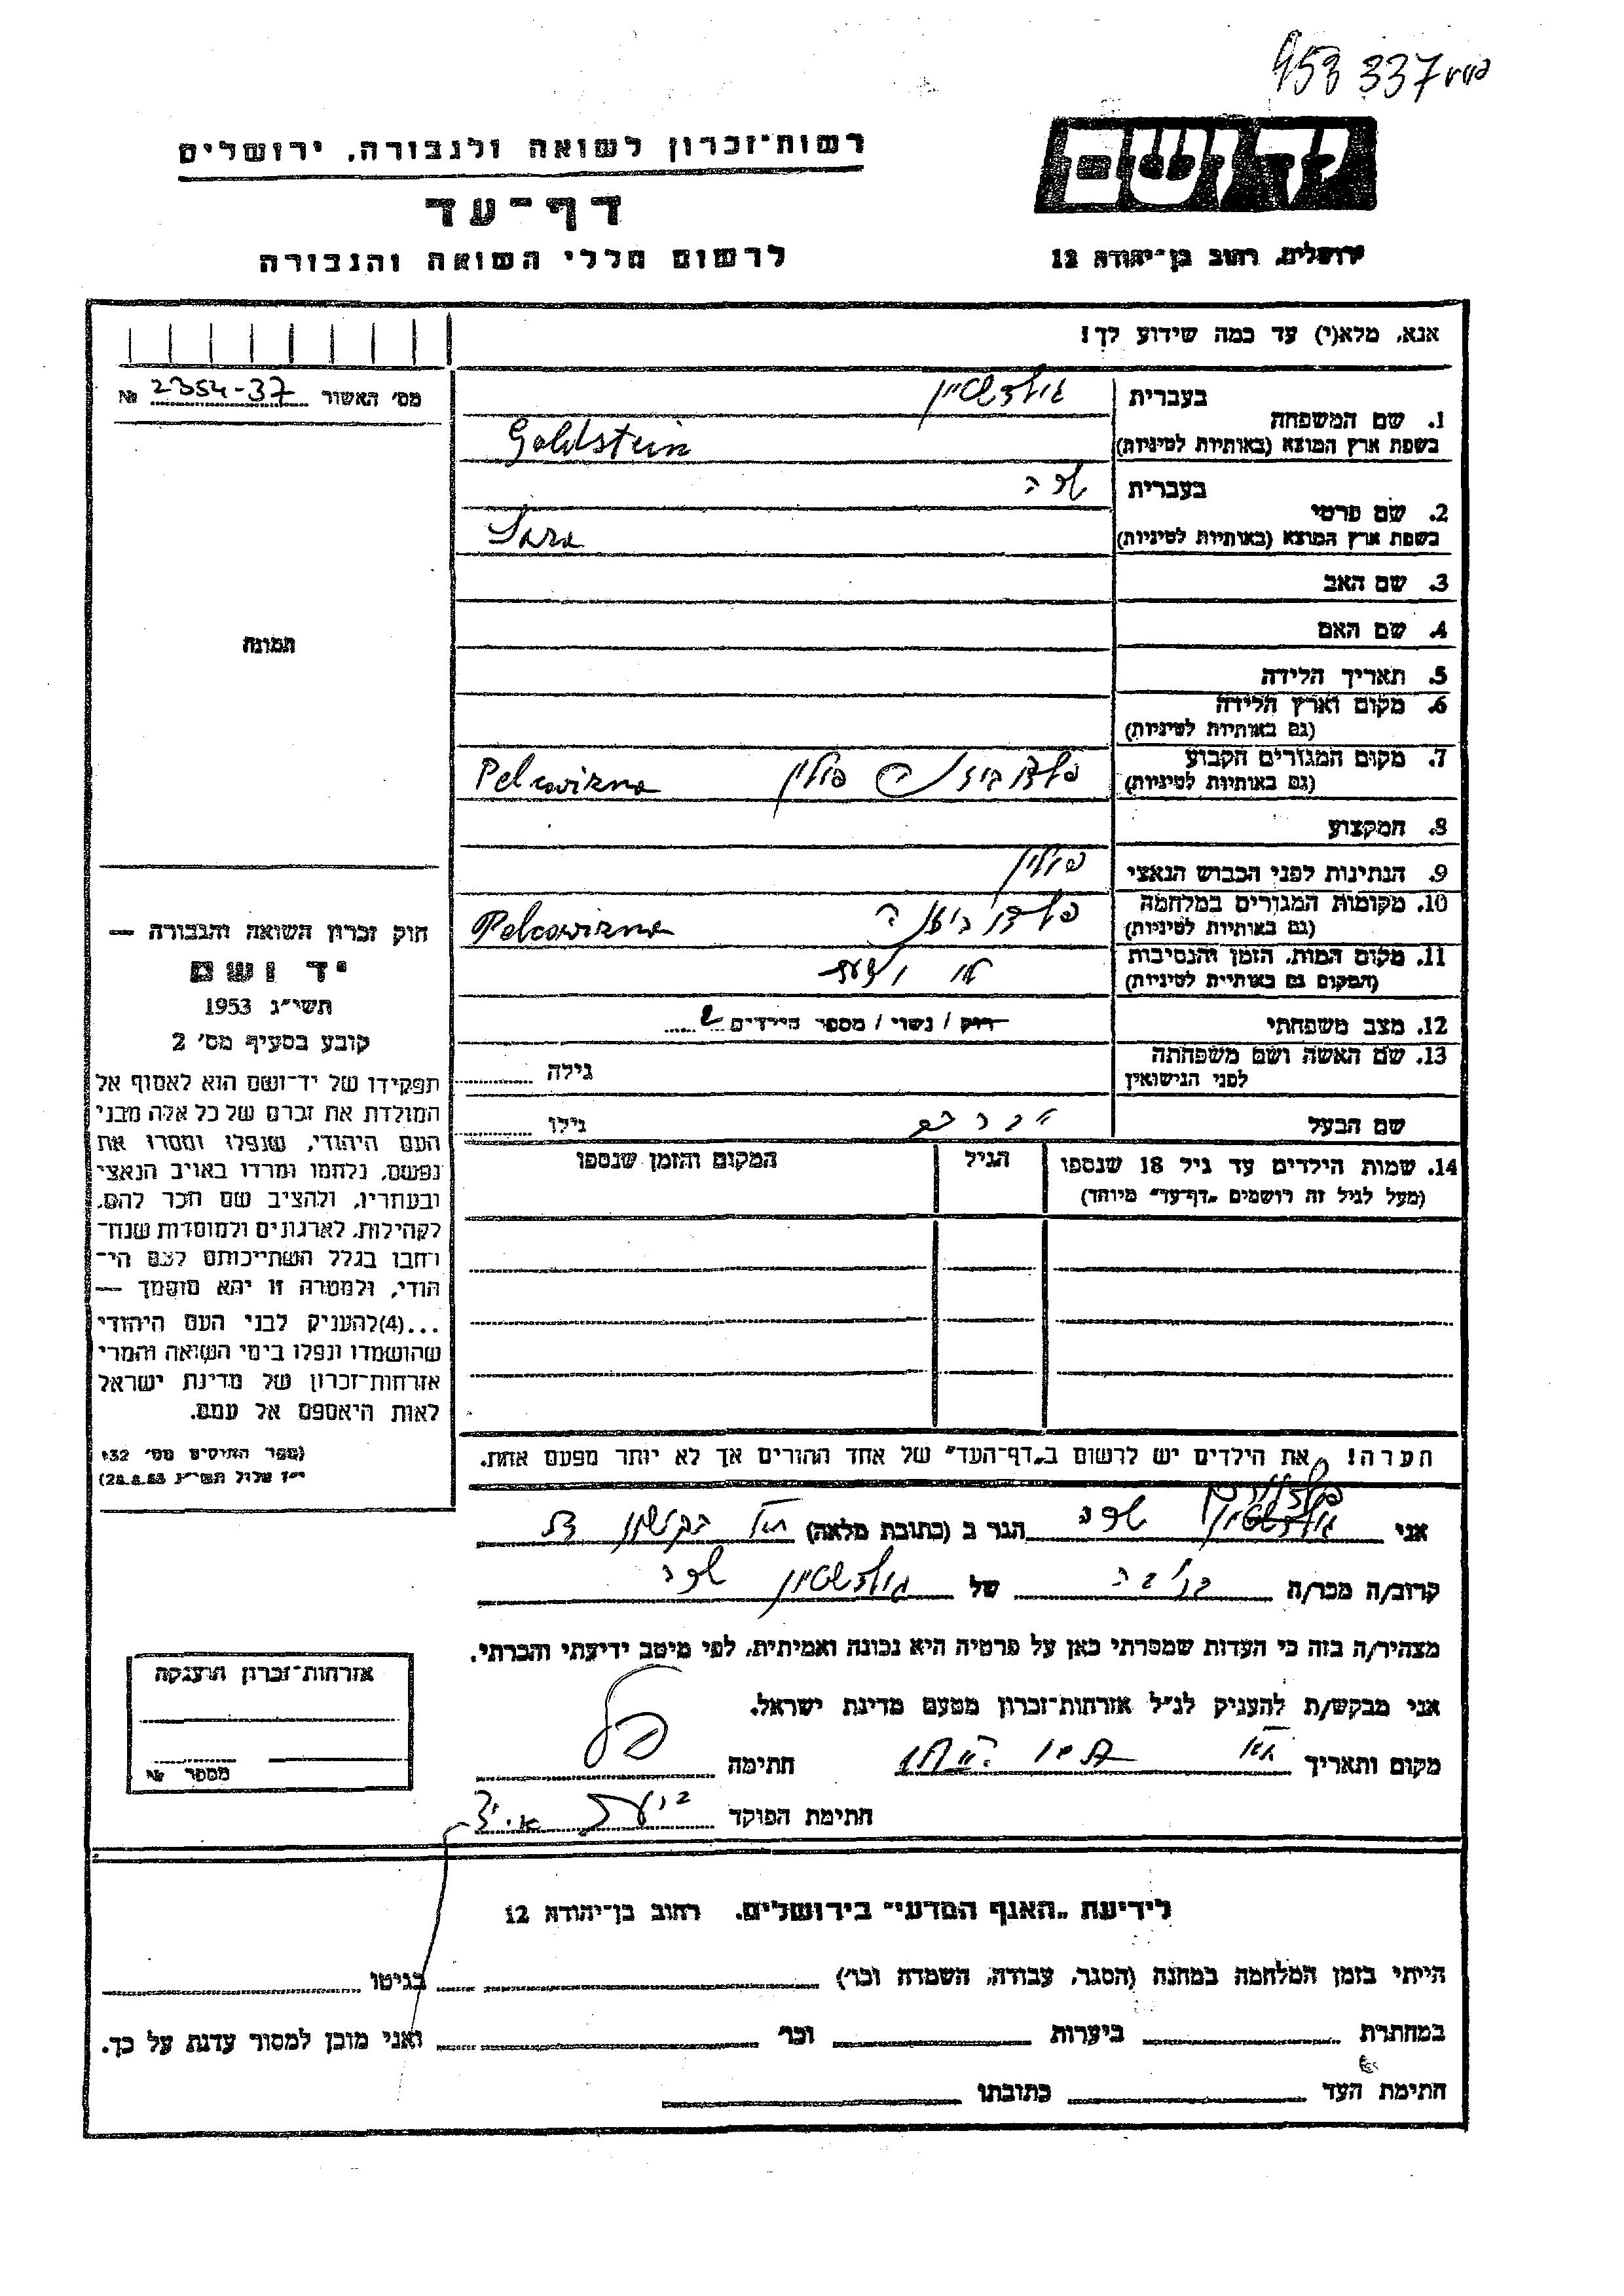 453 337
רשות־זכרון לשואה ולגבורה, ירושלים
יד ושם
דף־עד
לרשום חללי השואה והגבורה
ירושלים, רחוב בן־יהודה 12
אנא, מלא(י) עד כמה שידוע לך!
מס׳ האשור 2354-37 №
1. שם המשפחה
בעברית גולדשטיין
בשפת ארץ המוצא (באותיות לטיניות) Goldstein
2. שם פרטי
בעברית שרה
בשפת ארץ המוצא (באותיות לטיניות) Sara
3. שם האב
4. שם האם
5. תאריך הלידה
6. מקום וארץ הלידה
(גם באותיות לטיניות)
7. מקום המגורים הקבוע
(גם באותיות לטיניות) פולין Pelcowizna
8. המקצוע
9. הנתינות לפני הכבוש הנאצי פולין
10. מקומות המגורים במלחמה
(גם באותיות לטיניות) Pelcowizna
11. מקום המות, הזמן והנסיבות
(המקום גם באותיית לטיניות) לא
12. מצב משפחתי רווק / נשוי / מספר הילדים 2
13. שם האשה ושם משפחתה
לפני הנישואין
גילה
שם הבעל
גילו
14. שמות הילדים עד גיל 18 שנספו
(מעל לגיל זה רושמים „דף־עד״ מיוחד)
הגיל
המקום והזמן שנספו
תמונה
חוק זכרון השואה והגבורה —
יד ושם
תשי״ג 1953
קובע בסעיף מס׳ 2
תפקידו של יד־ושם הוא לאסוף אל
המולדת את זכרם של כל אלה מבני
העם היהודי, שנפלו ומסרו את
נפשם, נלחמו ומרדו באויב הנאצי
ובעוזריו, ולהציב שם וזכר להם,
לקהילות, לארגונים ולמוסדות שנח־
רחבו בגלל השתייכותם לעם הי־
הודי, ולמטרה זו יהא מוסמך —
...(4)להעניק לבני העם היהודי
שהושמדו ונפלו בימי השואה והמרי
אזרחות־זכרון של מדינת ישראל
לאות היאספם אל עמם.
(ספר החוקים מס׳ 132
י״ז אלול תשי״ג 28.8.53)
הערה! את הילדים יש לרשום ב„דף־העד״ של אחד ההורים אך לא יותר מפעם אחת.
אני גולדשטיין שרה הגר ב (כתובת מלאה)
קרוב/ה מכר/ה של גולדשטיין שרה
מצהיר/ה בזה כי העדות שמסרתי כאן על פרטיה היא נכונה ואמיתית, לפי מיטב ידיעתי והכרתי.
אני מבקש/ת להעניק לנ״ל אזרחות־זכרון מטעם מדינת ישראל.
מקום ותאריך חתימה
חתימת הפוקד
אזרחות־זכרון הוענקה
מספר №
לידיעת „האגף המדעי״ בירושלים, רחוב בן־יהודה 12
הייתי בזמן המלחמה במחנה (הסגר, עבודה, השמדה וכו׳) בגיטו
במחתרת ביערות וכו׳ ואני מוכן למסור עדות על כך.
חתימת העד כתובתו